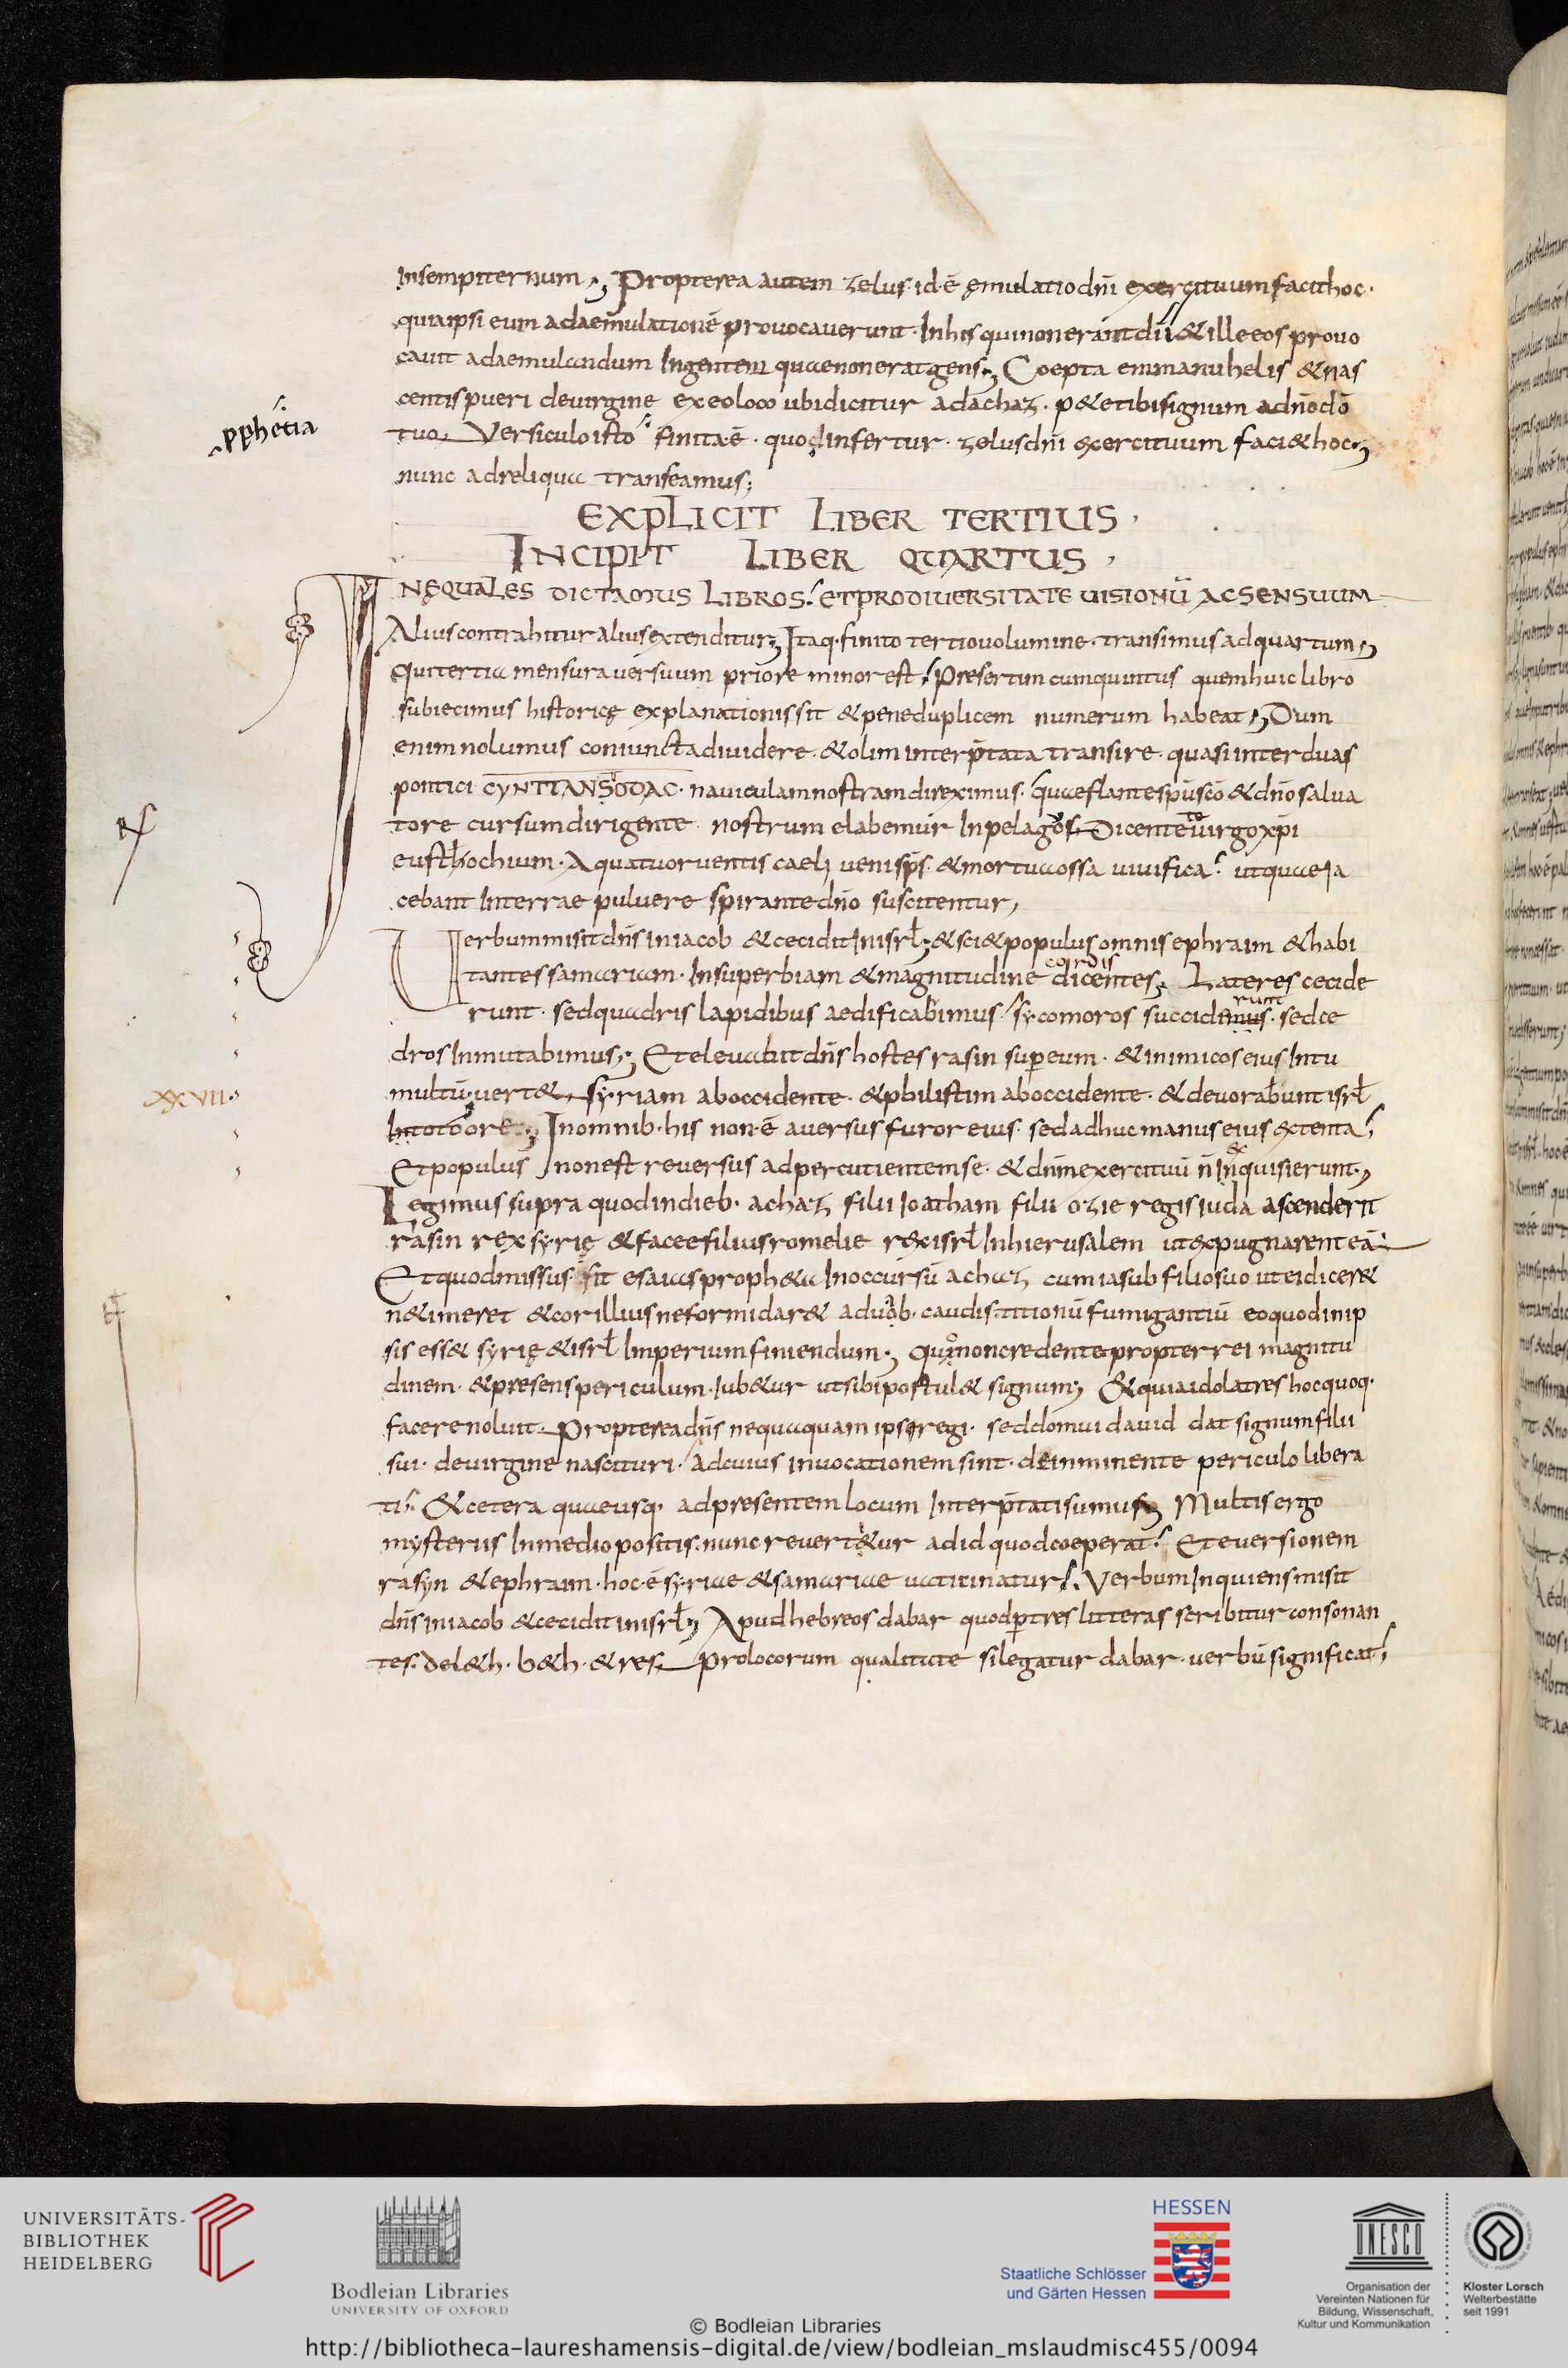 insempiternum, Propterea autem zelus· id·ē ęmulatio dn̄i exercituum facit hoc·
quia ipsi eum ad aemulationē provocaverunt· In his qui non erant dii & ille eos provo
cavit ad aemulandum In gentem quae non erat gens; Coepta emmanuhelis & nas
centis pueri de virgine ex eo loco ubi dicitur ad achaz· p&e tibi signum a dn̄o dō
pphetia
tuo, Versiculo isto finita·ē· quod infertur· zelus dn̄i exercituum faci& hoc;
nunc ad reliqua transeamus;
EXPLICIT LIBER TERTIUS,
INCIPIT LIBER QUARTUS,
INEQUALES DICTAMUS LIBROS. ET PRO DIVERSITATE VISIONŪ AC SENSUUM
Alius contrahitur alius extenditur; Itaq· finito tertio volumine· transimus ad quartum;
Qui tertia mensura versuum priore minor est; Presertim cum quintus quem huic libro
subiecimus historicę explanationis sit & pene duplicem numerum habeat; Dum
enim nolumus coniuncta dividere· & olim interp̄tata transire· quasi inter duas
pontici CYNTTANSODAC· naviculam nostram direximus· quae flante sp̄u sc̄o & dn̄o salva
tore cursum dirigente· nostrum elabemur In pelagos, Dicente virgo xp̄i
eusthochium· A quatuor ventis caeli veni sp̄s· & mortua ossa vivifica· ut quae ia
cebant In terrae pulvere spirante dn̄o suscitentur,
Verbum misit dn̄s in iacob & cecidit in isrł; & sci& populus omnis ephraim & habi
tantes samariam· In superbiam & magnitudine cordis dicentes, Lateres cecide
runt· sed quadris lapidibus aedificabimus· sycomoros succidimus runt· sed ce
dros Inmutabimus; Et elevabit dn̄s hostes rasin super eum· & inimicos eius In tu
xxvii·
multū· vert&, syriam ab occidente· & philistim ab occidente· & devorabunt isrł
In toto ore; In omnib· his non·ē aversus furor eius· sed adhuc manus eius extenta,
Et populus non est reversus ad percutientem se· & dn̄m exercituū n̄ Inquisierunt;
Legimus supra quod in dieb· achaz filii ioatham filii ozie regis iuda ascenderit
rasin rex syrię & facee filius romelie rex isrł In hierusalem ut expugnarent eā·
Et quod missus sit esaias proph&a In occursū achaz cum iasub filio suo ut ei dicer&
ne timeret & cor illius ne formidar& a duab· caudis titionū fumigantiū eo quod in ip
sis ess& syrię & isrł Imperium finiendum; quo non credente propter rei magnitu
dinem· & presens periculum· iub&ur ut sibi postul& signum; & quia idolatres hoc quoq·
facere noluit· Propterea dn̄s nequaquam ipsi regi· sed domui david dat signum filii
sui· de virgine nascituri· Ad cuius invocationem sint· de inminente periculo libera
ti· & cetera quae usq· ad presentem locum Interp̄tati sumus; Multis ergo
mysteriis In medio positis· nunc revert&ur ad id quod coeperat· Et eversionem
rasyn & ephraim· hoc·ē syriae & samariae vaticinatur; Verbum Inquiens misit
dn̄s in iacob & cecidit in isrł; Apud hebreos dabar quod p̄ tres litteras scribitur consonan
tes· del&h· b&h· & res, pro locorum qualitate si legatur dabar· verbū significat,
UNIVERSITÄTS-
BIBLIOTHEK
HEIDELBERG
Bodleian Libraries
UNIVERSITY OF OXFORD
HESSEN
Staatliche Schlösser
und Gärten Hessen
UNESCO
Organisation der
Vereinten Nationen für
Bildung, Wissenschaft,
Kultur und Kommunikation
Kloster Lorsch
Welterbestätte
seit 1991
© Bodleian Libraries
http://bibliotheca-laureshamensis-digital.de/view/bodleian_mslaudmisc455/0094